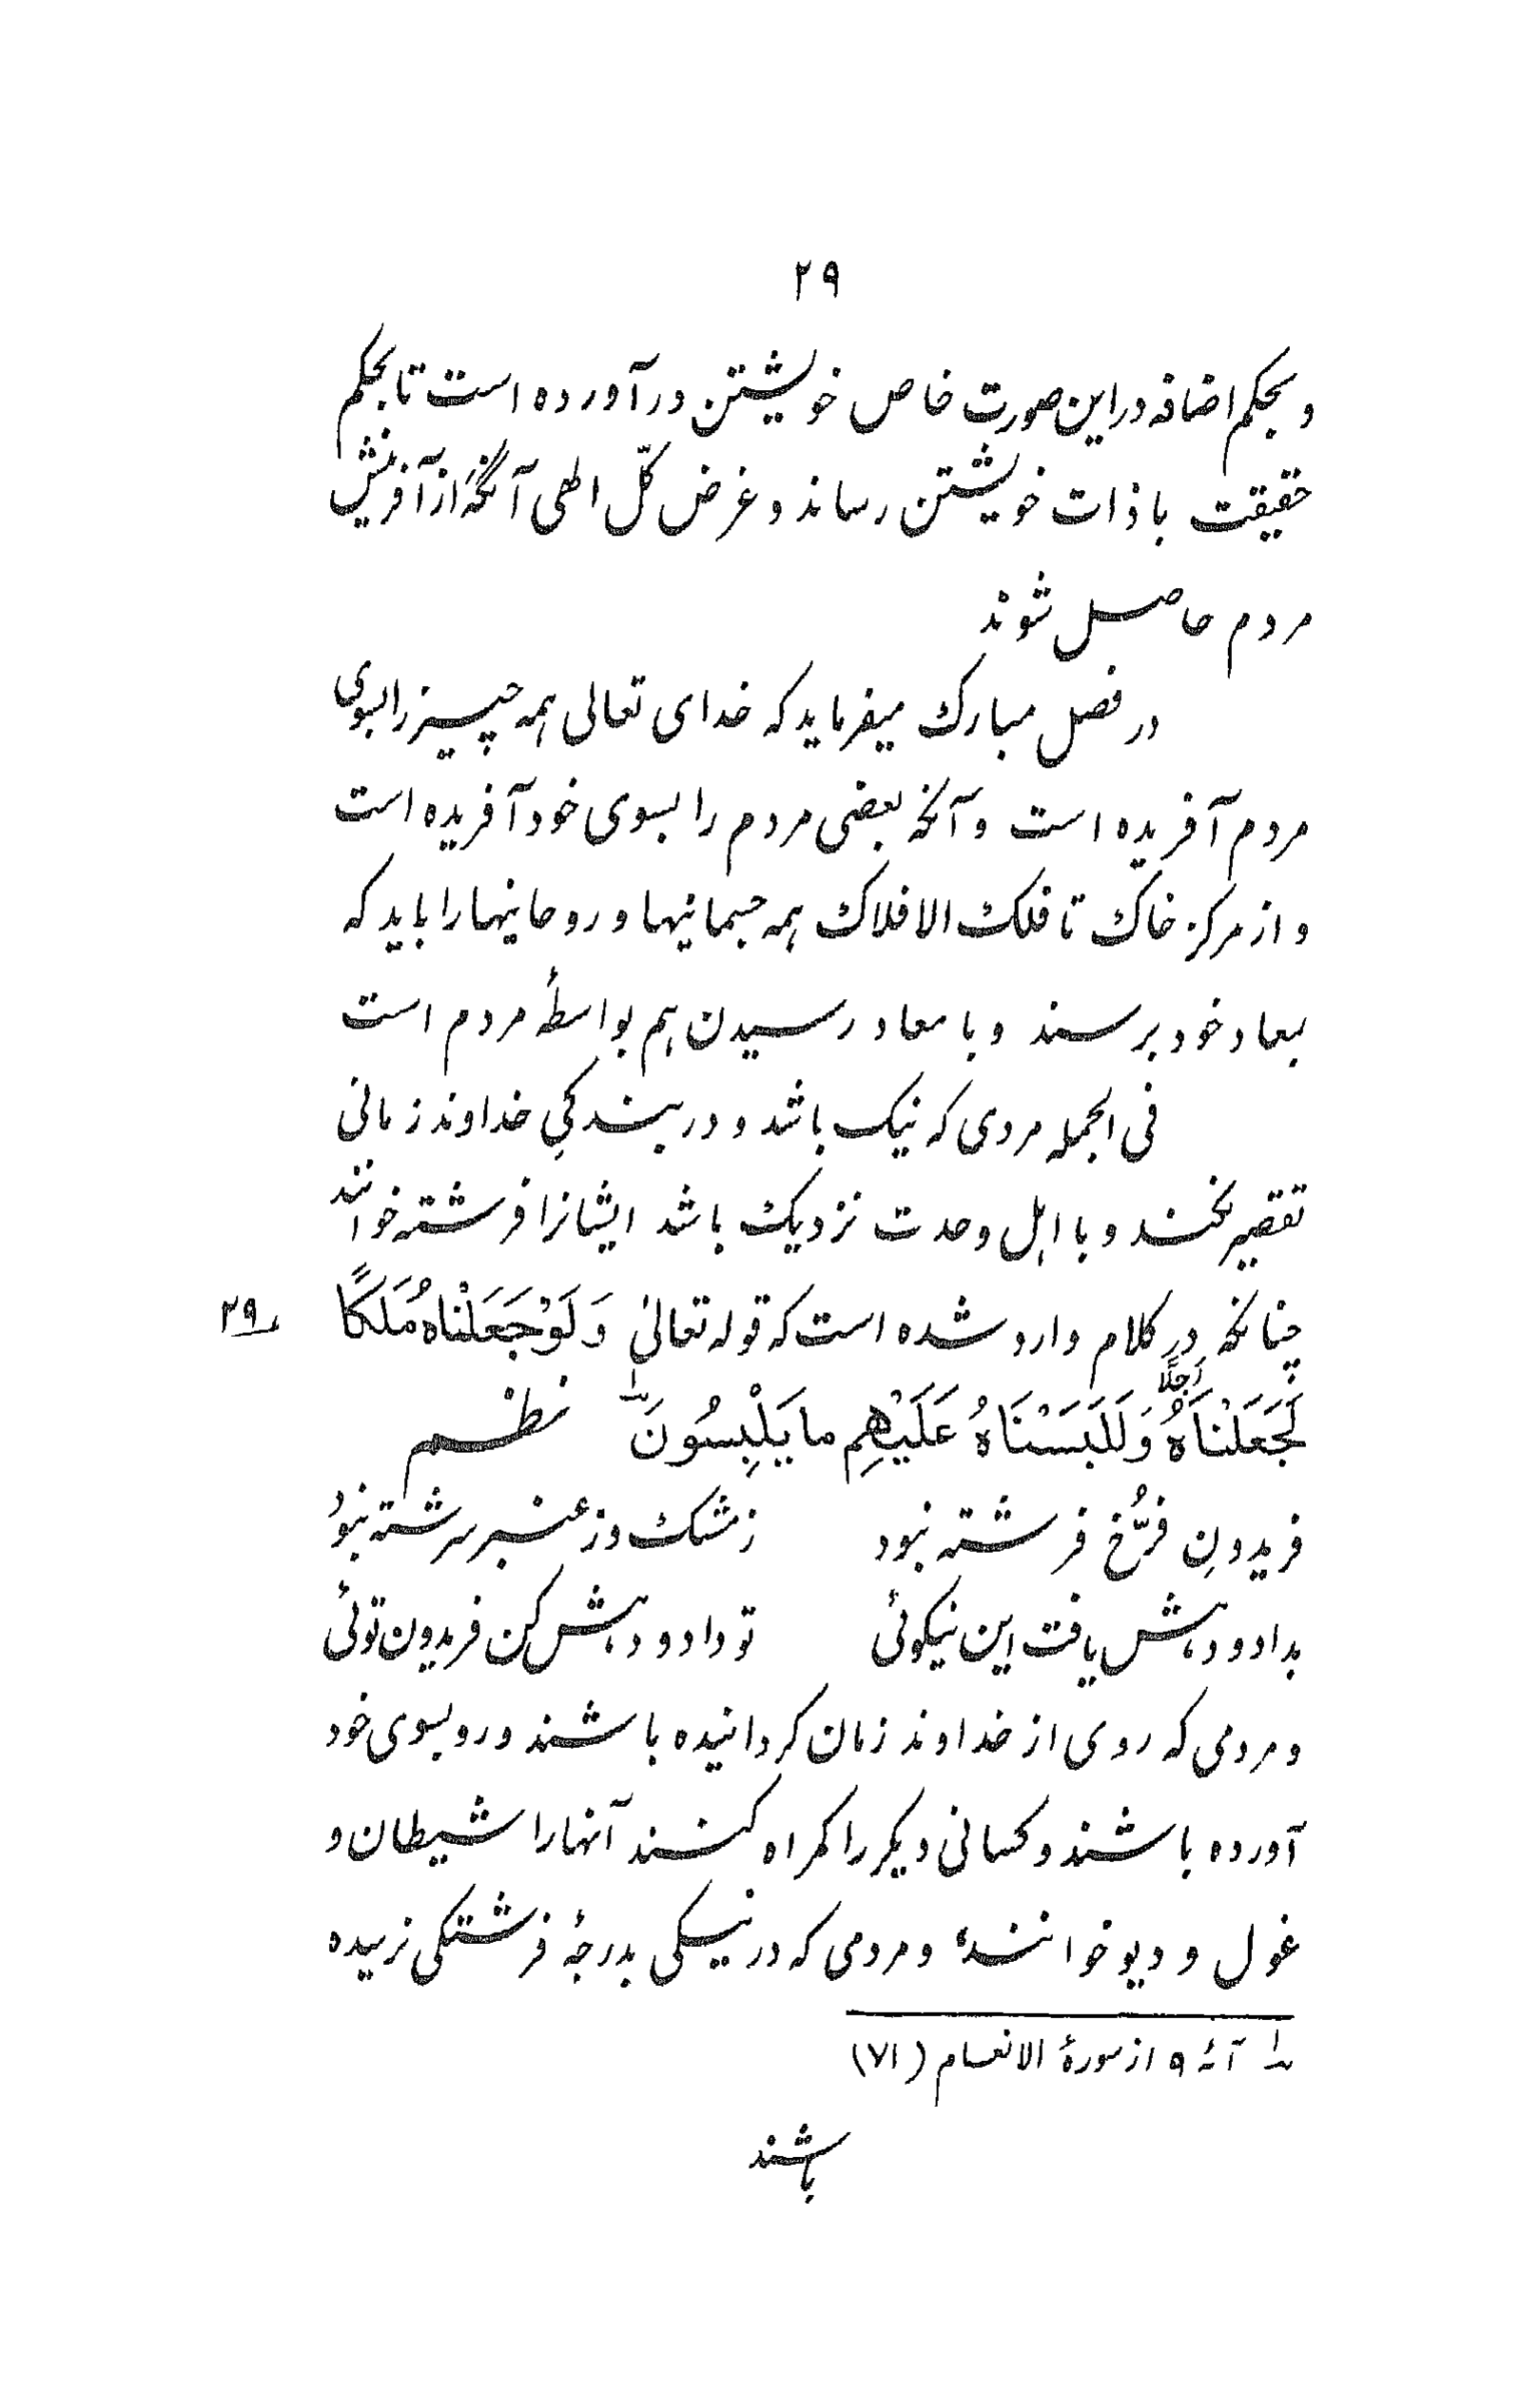 ۲۹
و بحکم اضافه در این صورت خاص خویشتن در آورده است تا بحکم
حقیقت با ذات خویشتن رساند و غرض کلّ الهی آنگه از آفرینش
مردم حاصل شوند
در فصل مبارک میفرماید که خدای تعالی همه چیز را بسوی
مردم آفریده است و آنکه بعضی مردم را بسوی خود آفریده است
و از مرکز خاک تا فلک الافلاک همه جسمانیها و روحانیها را باید که
بمعاد خود برسند و با معاد رسیدن هم بواسطهٔ مردم است
فی الجمله مردی که نیک باشد و در بندکیِ خداوند زمانی
تقصیر نکند و با اهل وحدت نزدیک باشد ایشانرا فرشته خوانند
چنانکه در کلام وارد شده است که قوله تعالیٰ وَلَوْ جَعَلْناهُ مَلَكًا
ر۲۹
لَجَعَلْنَاهُ رَجُلًا وَلَلَبَسْنَاهُ عَلَيْهِم ما يَلْبِسُونَ ۱ نظم
فریدونِ فرُّخ فرشته نبود ز مشک و ز عنبر سرشته نبوُد
بداد و دهش یافت این نیکوئی تو داد و دهش کن فریدون توئی
و مردمی که روی از خداوند زمان کردانیده باشند و رو بسوی خود
آورده باشند و کسانی دیکر را کمراه کنند آنها را شیطان و
غول و دیو خوانند، و مردمی که در نیکی بدرجهٔ فرشتکی نرسیده
۱ آیهٔ ۹ از سورهٔ الانعام (۷۱)
باشند